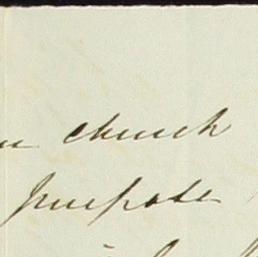 church
purpose